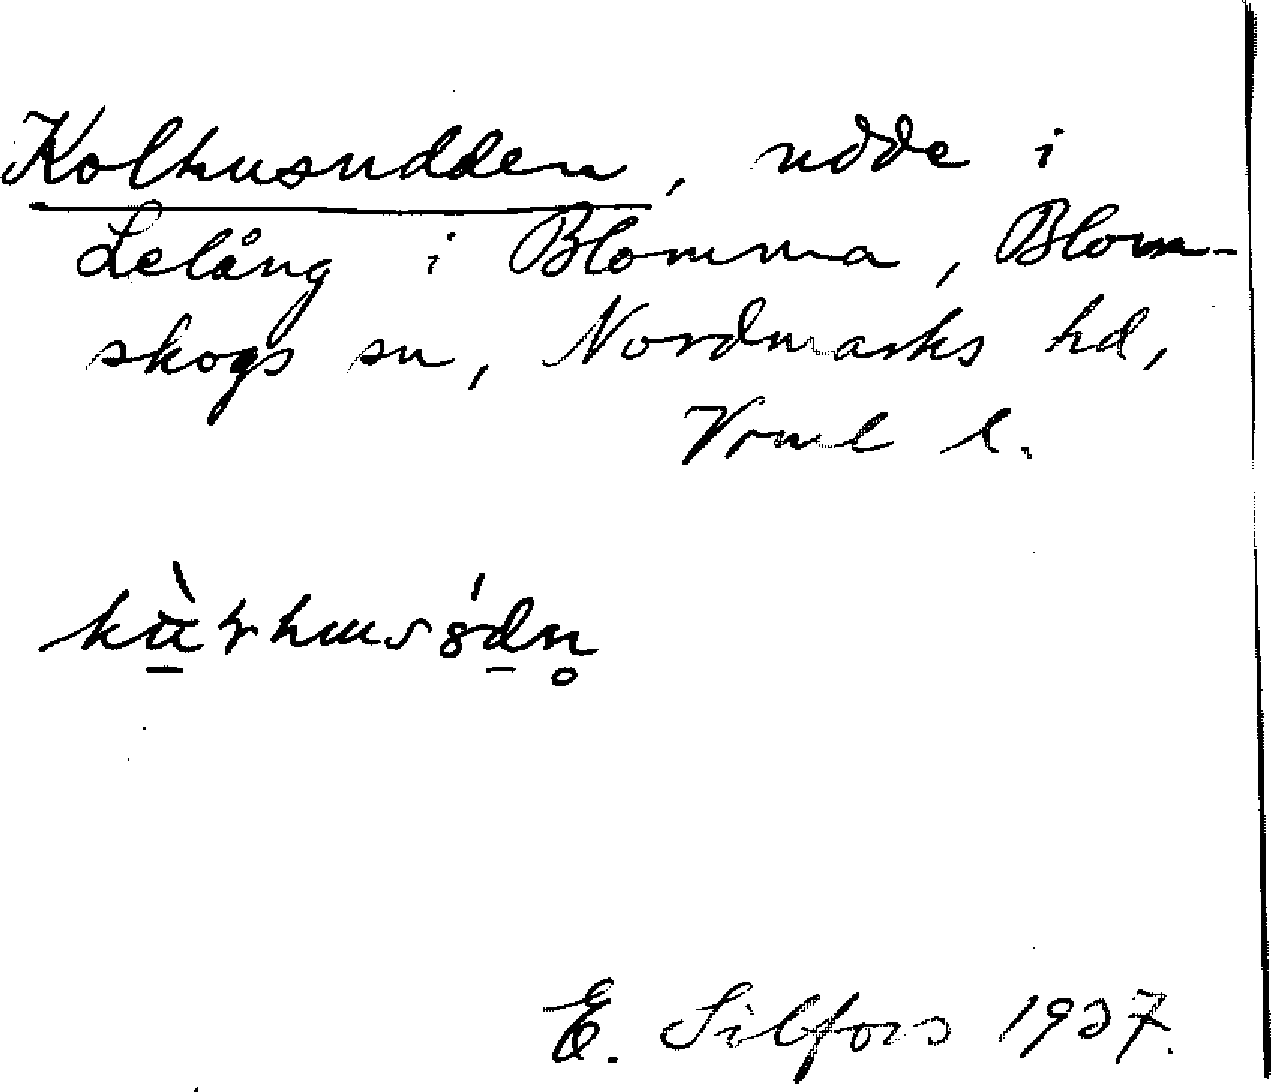 Kolhusudden, udde i
Lelång i Blomma, Blom-
skogs sn, Nordmarks hd,
Vrml l.
E. Silfors 1937.